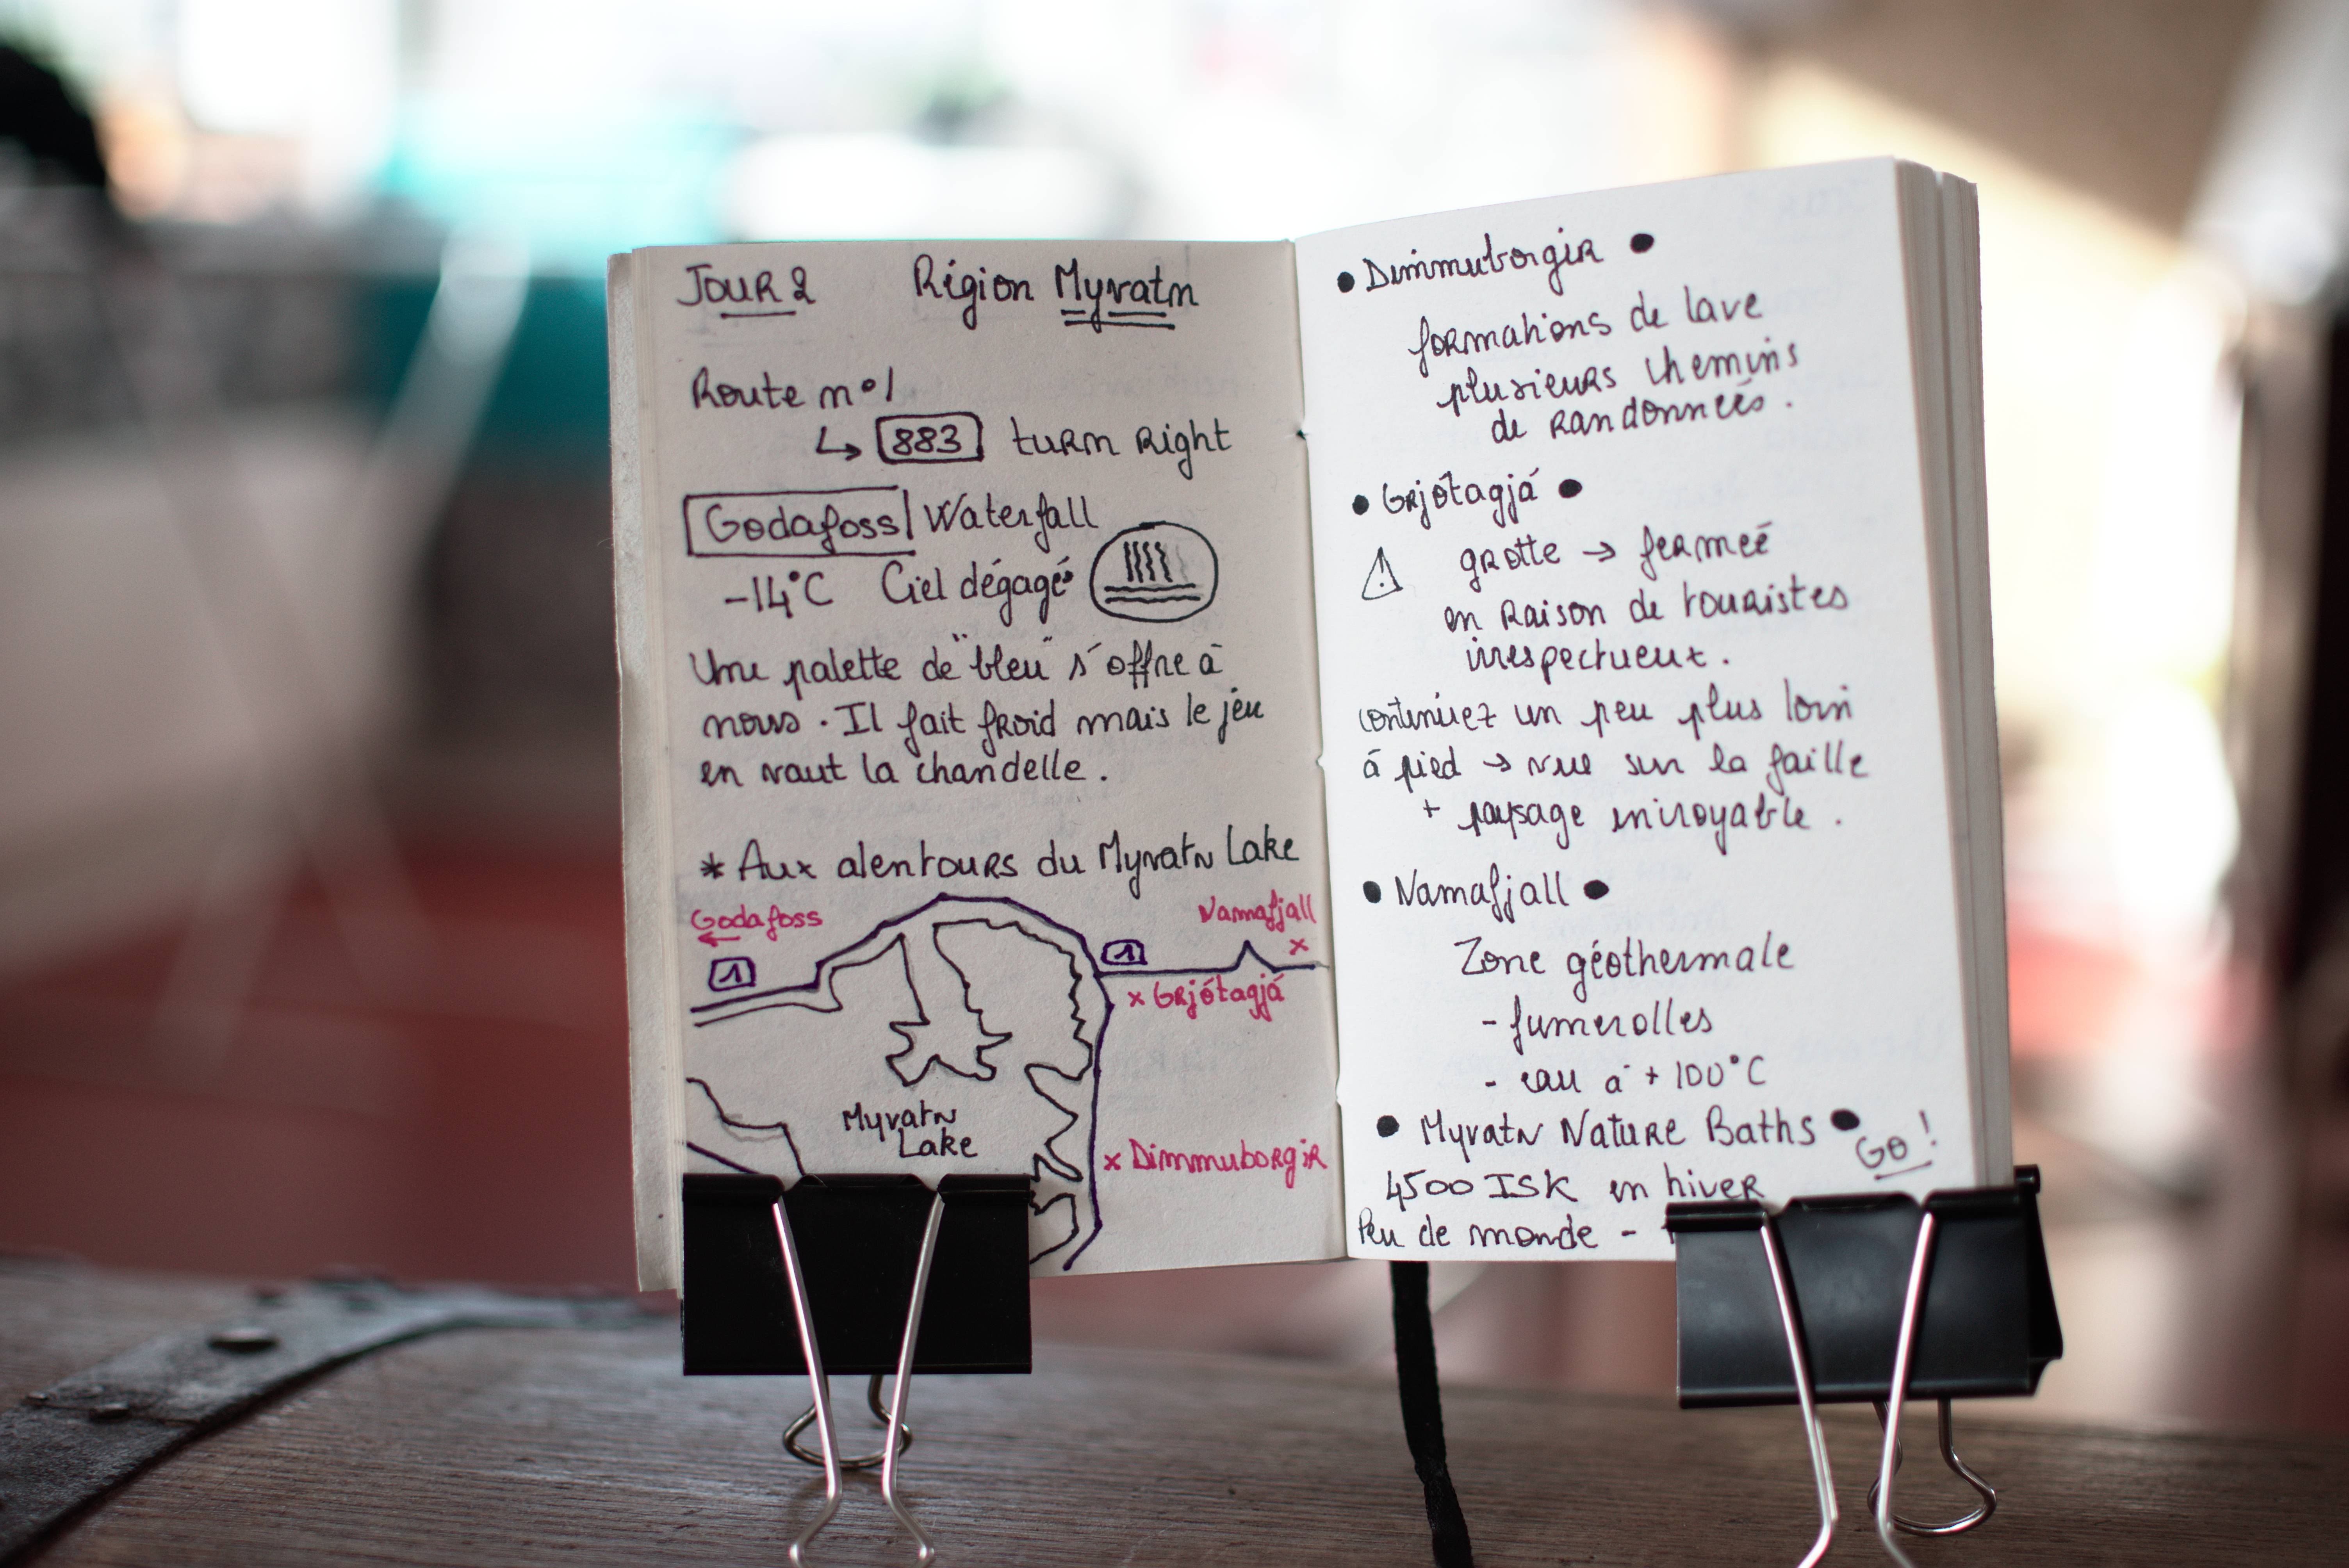 JOUR 2 Région Myvatn
Route n°1
↳ 883 turn right
Godafoss Waterfall
-14°C Ciel dégagé
Une palette de "bleu" s'offre à
nous. Il fait froid mais le jeu
en vaut la chandelle.
* Aux alentours du Myvatn Lake
Godafoss
←
1
1
Namafjall
x
x Grjótagjá
Myvatn
Lake
x Dimmuborgir
• Dimmuborgir •
formations de lave
plusieurs chemins
de randonnées.
• Grjótagjá •
⚠ grotte → fermée
en raison de touristes
irrespectueux.
continuez un peu plus loin
à pied → vue sur la faille
+ paysage incroyable.
• Namafjall •
Zone géothermale
- fumerolles
- eau à + 100°C
• Myvatn Nature Baths •
GO !
4500 ISK en hiver
Peu de monde -